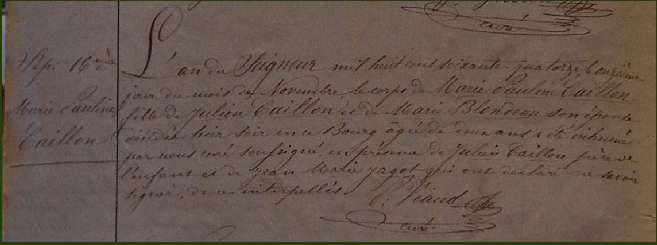 curé
Sép. 16e
Marie Pauline
Taillon
L'an du Seigneur mil huit cent soixante-quatorze, le onzième
jour du mois de Novembre le corps de Marie Pauline Taillon
fille de Julien Taillon et de Marie Blondeau son épouse
décédée hier soir en ce Bourg agée de deux ans a été inhumé
par nous curé soussigné, en présence de Julien Taillon père de
l'enfant et de Jean Marie Jagot qui ont déclaré ne savoir
signer, de ce interpellés.
Viaud
curé